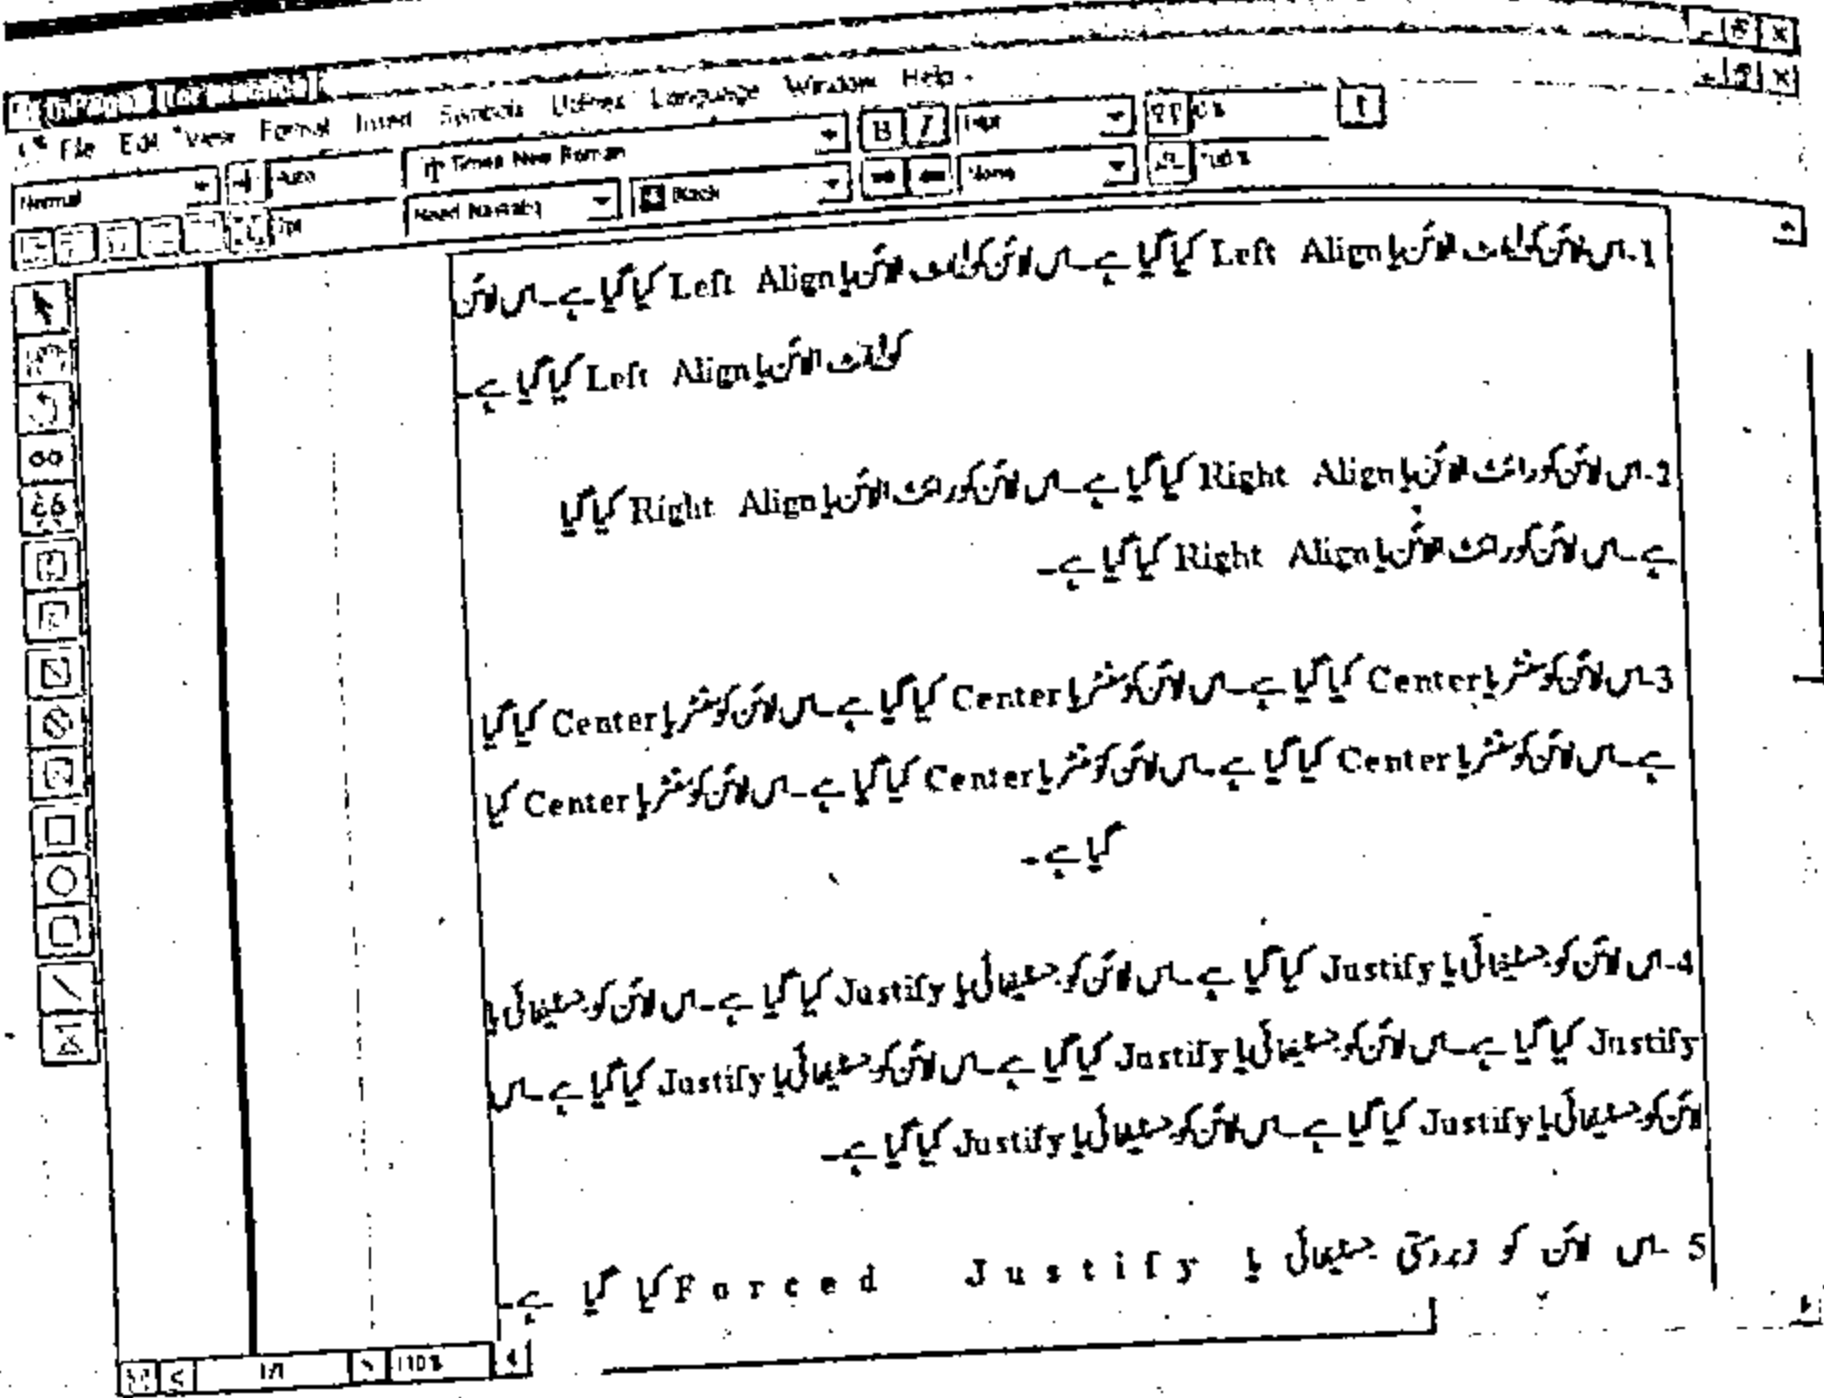 InPage - [for practice]
File Edit View Format Insert Symbols Utilities Language Window Help
Normal Auto Times New Roman B I 0%
0pt Noori Nastaliq Black None 100%
1-اس لائن کو لیفٹ الائن یا Left Align کیا گیا ہے۔اس لائن کو لیفٹ الائن یا Left Align کیا گیا ہے۔اس لائن
کو لیفٹ الائن یا Left Align کیا گیا ہے۔
2-اس لائن کو رائٹ الائن یا Right Align کیا گیا ہے۔اس لائن کو رائٹ الائن یا Right Align کیا گیا
ہے۔اس لائن کو رائٹ الائن یا Right Align کیا گیا ہے۔
3-اس لائن کو سنٹر یا Center کیا گیا ہے۔اس لائن کو سنٹر یا Center کیا گیا ہے۔اس لائن کو سنٹر یا Center کیا گیا
ہے۔اس لائن کو سنٹر یا Center کیا گیا ہے۔اس لائن کو سنٹر یا Center کیا گیا ہے۔اس لائن کو سنٹر یا Center کیا
گیا ہے۔
4-اس لائن کو جسٹیفائی یا Justify کیا گیا ہے۔اس لائن کو جسٹیفائی یا Justify کیا گیا ہے۔اس لائن کو جسٹیفائی یا
Justify کیا گیا ہے۔اس لائن کو جسٹیفائی یا Justify کیا گیا ہے۔اس لائن کو جسٹیفائی یا Justify کیا گیا ہے۔اس
لائن کو جسٹیفائی یا Justify کیا گیا ہے۔اس لائن کو جسٹیفائی یا Justify کیا گیا ہے۔
5 ۔اس لائن کو زبردستی جسٹیفائی یا Forced Justify کیا گیا ہے۔
1/1 110%